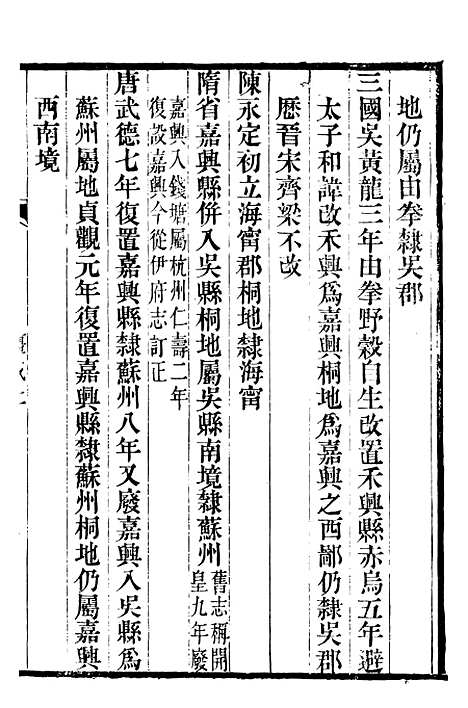 地仍屬由拳隸吳郡
三國吳黃龍三年由拳野穀自生改置禾興縣赤烏五年避
太子和諱改禾興爲嘉興桐地爲嘉興之西鄙仍隸吳郡
歷晉宋齊梁不改
陳永定初立海甯郡桐地隸海甯
隋省嘉興縣併入吳縣桐地屬吳縣南境隸蘇州舊志稱開皇九年廢
嘉興入錢塘屬杭州仁壽二年
復設嘉興今從伊府志訂正
唐武德七年復置嘉興縣隸蘇州八年又廢嘉興入吳縣爲
蘇州屬地貞觀元年復置嘉興縣隸蘇州桐地仍屬嘉興
西南境